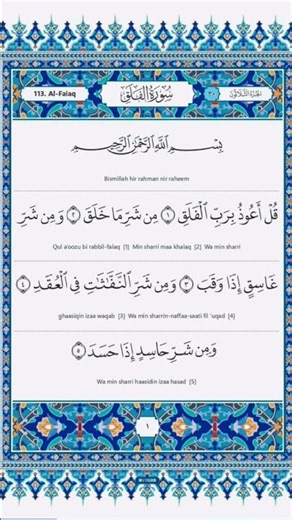 113. Al-Falaq
سُورَةُ الفَلَقِ
الجزء الثلاثون
٣٠
بِسْمِ اللَّهِ الرَّحْمَٰنِ الرَّحِيمِ
Bismillah hir rahman nir raheem
قُلْ أَعُوذُ بِرَبِّ الْفَلَقِ ١ مِن شَرِّ مَا خَلَقَ ٢ وَمِن شَرِّ
Qul a'oozu bi rabbil-falaq [1] Min sharri maa khalaq [2] Wa min sharri
غَاسِقٍ إِذَا وَقَبَ ٣ وَمِن شَرِّ النَّفَّاثَاتِ فِي الْعُقَدِ ٤
ghaasiqin izaa waqab [3] Wa min sharrin-naffaa-saati fil 'uqad [4]
وَمِن شَرِّ حَاسِدٍ إِذَا حَسَدَ ٥
Wa min sharri haasidin izaa hasad [5]
١